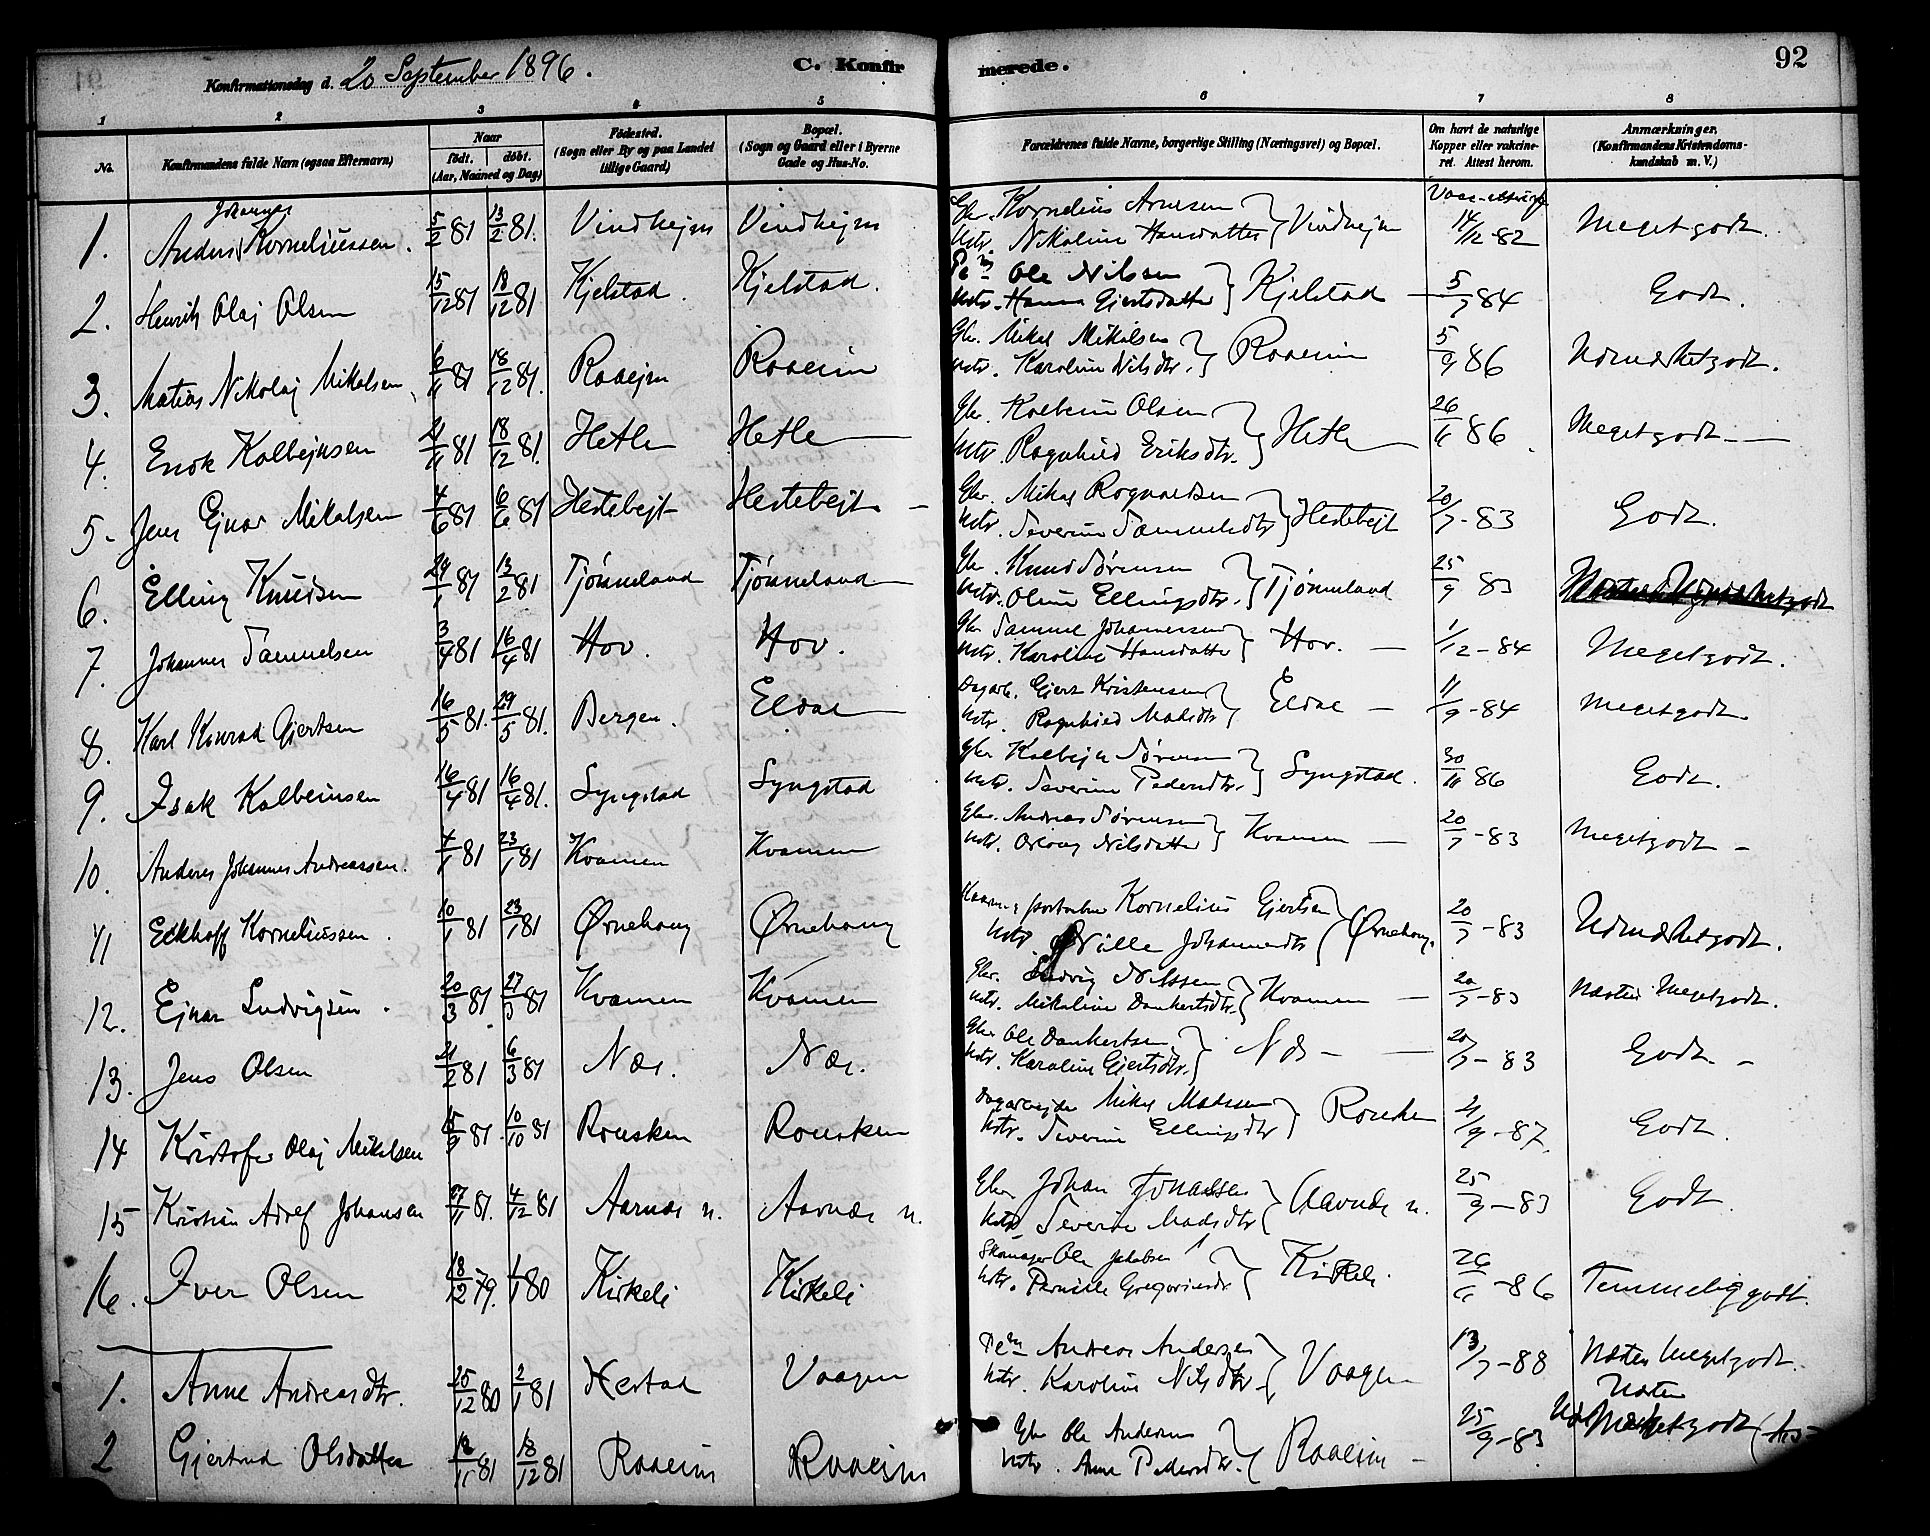 Konfirmationsdag d. 20 September 1896. C. Konfirmerede. 92
1 2 3 4 5 6 7 8
No. Konfirmandens fulde Navn (ogsaa Efternavn) Naar født. døbt. (Aar, Maaned og Dag) Fødested. (Sogn eller By og paa Landet tillige Gaard) Bopæl. (Sogn og Gaard eller i Byerne Gade og Hus-No. Forældrenes fulde Navne, borgerlige Stilling (Næringsvei) og Bopæl. Om havt de naturlige Kopper eller vakcineret. Attest herom. Anmærkninger. (Konfirmandens Kristendomskundskab m. V.)
1. Anders Johannes Korneliussen. 5/2 81 13/2 81. Vindhejm Vindhejm Gbr. Kornelius Arnesen Hstr. Nikoline Hansdatter Vindhejm 14/12-82 Meget godt.
2. Henrik Olaj Olsen 15/12 81 18/12 81 Kjelstad. Kjelstad. Ole Nilsen Hstr. Hanna Gjertsdatter Kjelstad 5/7 84 Godt.
3. Matias Nikolaj Mikalsen 6/11 81 18/12 81. Raaejm Raaeim Gbr. Mikal Mikalsen Hstr. Karoline Nilsdtr. Raaeim 5/9 86 Udmærket godt.
4. Enok Kolbejnsen 21/11 81 18/12 81. Hetle Hetle Gbr. Kolbein Olsen Hstr. Ragnhild Eriksdtr. Hetle 26/11 86. Meget godt
5. Jens Ejnar Mikalsen 4/6 81 6/6 81 Hestebejt Hestebejt. Gbr. Mikal Rognaldsen Hstr. Severine Samuelsdtr Hestebejt 20/7-83 Godt.
6. Elling Knudsen 24/1 81 13/2 81 Tjønneland Tjønneland Gbr. Knud Sørensen Hstr. Oline Ellingsdtr. Tjønneland 25/9 83
7. Johannes Samuelsen 3/4 81 16/4 81 Hov. Hov. Gbr Samuel Johannessen Hstr. Karoline Hansdatter Hov. 1/12-84 Meget godt.
8. Karl Konrad Gjertsen 16/5 81. 29/5 81. Bergen. Eldal Dagarb. Gjert Kristensen Hstr. Ragnhild Madsdtr Eldal 11/9-84 Meget godt.
9. Isak Kolbeinsen 16/4 81 16/4 81. Syngstad Syngstad Gbr Kolbejn Sørensen Hstr. Severine Pedersdtr. Syngstad. 30/11 86 Godt.
10. Anders Johannes Andreassen. 4/1 81 23/1 81 Kvamen Kvamen Gbr. Andreas Sørensen Hstr. Nilsdatter Kvamen 20/7-83 Meget godt
11 Eckhoff Korneliussen. 10/1 81 23/1 81 Ørnehaug Ørnehaug Kornelius Gjertsen Hstr Johannesdtr Ørnehaug. 20/7-83 Udmærket godt.
12. Ejnar Ludvigsen. 20/3 81 27/3 81 Kvamen Kvamen Gbr. Ludvig Nilssen Hstr. Mikaline Dankertsdtr. Kvamen 20/7-83 Næsten Meget godt.
13. Jens Olsen 21/2 81 6/3 81 Næs. Næs. Gbr Ole Dankertsen Hstr. Karoline Gjertsdtr. Næs 20/7-83 Godt
14 Kristofer Olaj Mikalsen 15/9 81 10/10 81 Rousken Rousken Dagarbejder Mikal Madssen Hstr. Severine Ellingsdtr Rousken 21/9-87. Godt.
15 Kristian Adolf Johansen 27/11 81. 4/12 81 Aarnæs n. Aarnæs n. Gbr Johan Jonassen Hstr. Severine Madsdtr Aarnæs n. 25/9-83 Godt
16. Iver Olsen 18/12 79. 1/1 80 Kirkeli Kirkeli Skomager Ole Jakobsen Hstr. Pernille Gregoriusdr. Kirkeli. 26/11-86 Temmelig godt.
1. Anne Andreasdtr. 25/12 80 2/1 81 Herstad Vaagen Andreas Andersen Hstr. Karoline Nilsdtr. Vaagen 13/7-88 Næsten Meget godt.
2 Gjertrud Olsdatter 18/11 81 18/12 81 Raaeim Raaejm Gbr Ole Andersen Hstr. Anne Pedersdtr. Raaeim 25/9-83 Næsten Meget godt